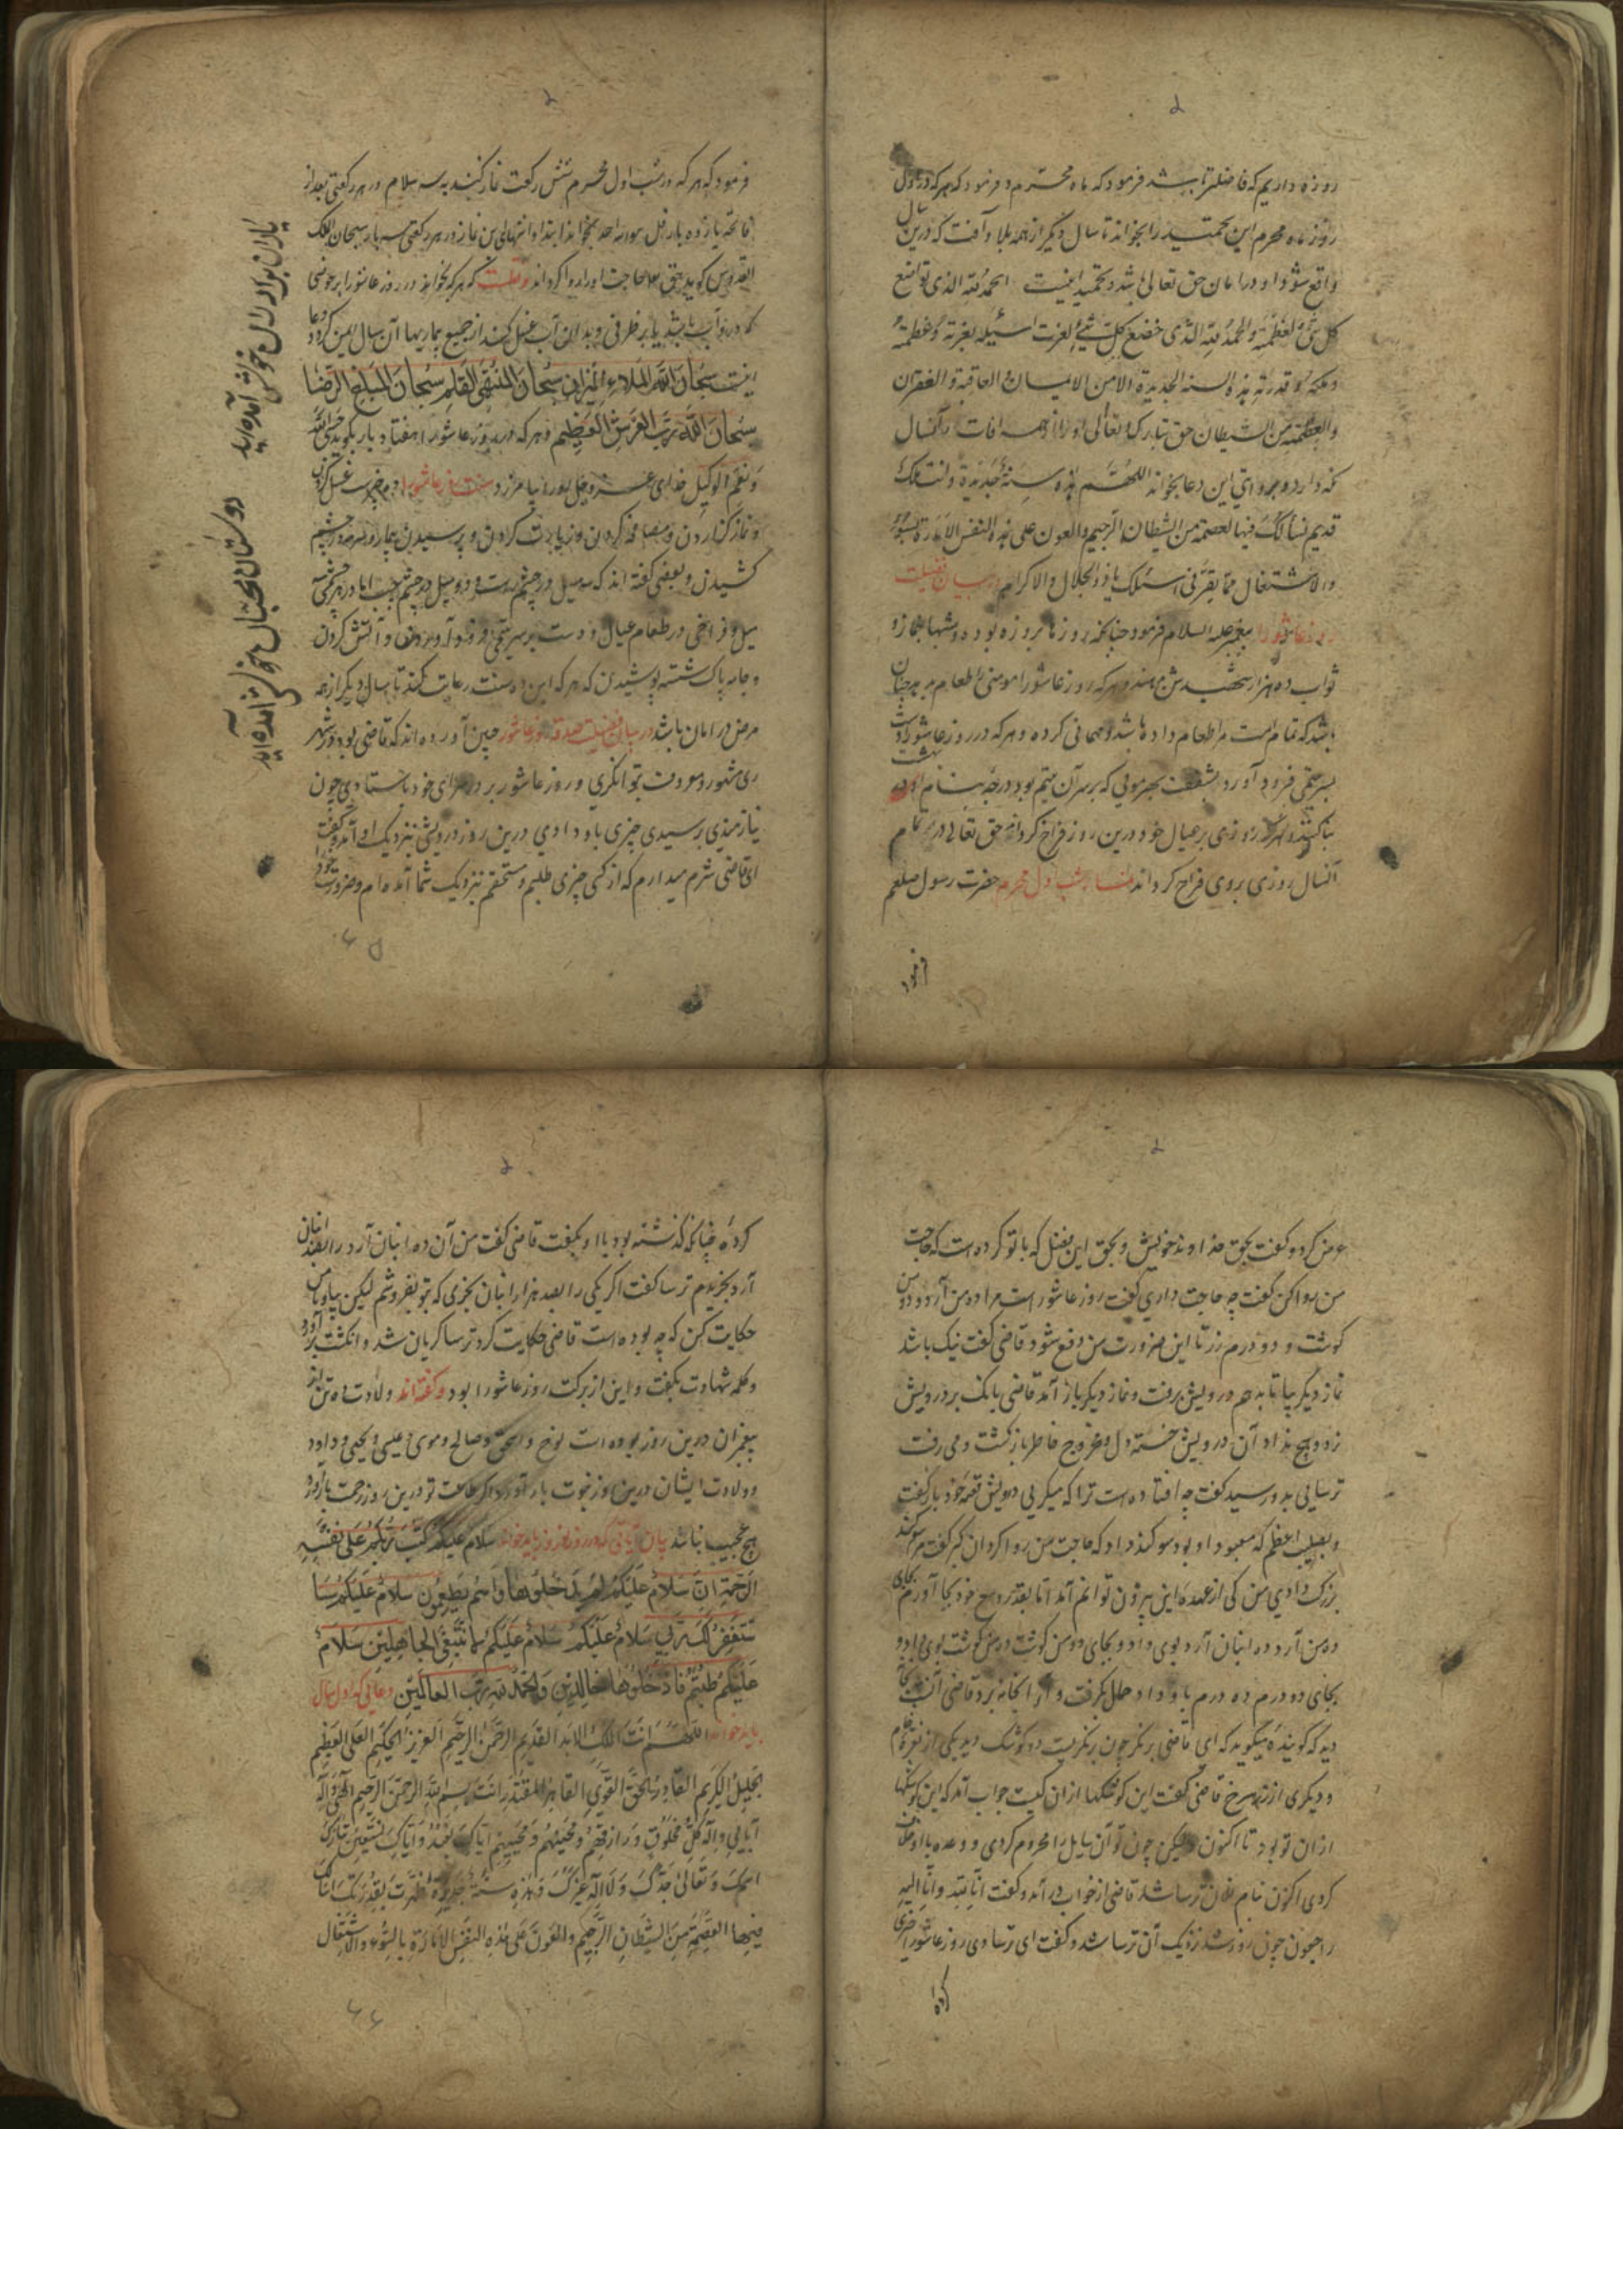 روزه داریم که فاضلتر باشد فرمود که ماه محرم و فرمود که هر که در اول
روز ماه محرم این تحمید را بخواند تا سال دیگر از همه بلا و آفت که درین سال
واقع شود او در امان حق تعالی باشد و تحمید اینست الحمد لله الذی تواضع
کل شیء لعظمته والحمد لله الذی خضع کل شیء لعزته
وملکه و قدرته هذه السنه الجدیدة الامن الایمان العافیة و الغفران
والعصمة من الشیطان حق تبارک و تعالی او را از همه آفات آنسال
نکه دارد و بروایتی این دعا بخواند اللهم هذه سنة جدیدة وانت ملک
قدیم نسألک فیها العصمة من الشیطان الرجیم والعون علی هذه النفس الامارة بالسوء
والاشتغال بما یقربنی الیک یا ذو الجلال والاکرام در بیان فضیلت
روز عاشورا پیغمبر علیه السلام فرمود چنانکه روزها بروزه بود و شبها بنماز و
ثواب ده هزار شهید و هر که روز عاشورا مومنی را طعام دهد چنان
باشد که تمام امت مرا طعام داده باشد و مهمانی کرده و هر که در روز عاشورا دست
بر سر یتیمی فرود آورد بشفقت بهر مویی که بر سر آن یتیم بود درجه بنام او در بهشت
بنا کنند و هر که روزی بر عیال خود درین روز فراخ کرداند حق تعالی در تمام
آنسال روزی بروی فراخ کرداند نماز شب اول محرم حضرت رسول صلعم
فرمود
فرمود که هر که در شب اول محرم شش رکعت نماز کند به سه سلام در هر رکعتی بعد از
فاتحه یازده بار قل هو الله احد بخواند سبحان الملک
القدوس کوید حق تعالی حاجت او را روا کرداند و
که درو آب باشد یا بر ظرفی و بدان آب غسل کند از جمیع بیماریها آن سال ایمن کردد و دعا
اینست سبحان الله ملاء المیزان سبحان المنتهی العلم سبحان المبلغ الرضا
سبحان الله رب العرش العظیم و هر که در روز عاشورا هفتاد بار بکوید حسبی الله
ونعم الوکیل خدای عز و جل او را بیامرزد سنت روز عاشورا غسل کردن
و نماز کزاردن و مصافحه کردن و زیارت کردن و پرسیدن بیمار و سرمه در چشم
کشیدن و بعضی گفته اند که سه میل در چشم راست و دو میل در چشم چپ اما در هر چشمی سه
میل و فراخی در طعام عیال و دست بر سر یتیمی فرود آوردن و آتش کردن
و جامه پاک شسته پوشیدن که هر که این ده سنت رعایت کند تا سال دیگر از همه
مرض در امان باشد در بیان فضیلت صدقه روز عاشورا چنین آورده اند که قاضی بود در شهر
ری مشهور و معروف بتوانکری و روز عاشورا بر در سرای خود باستادی چون
نیازمندی برسیدی چیزی باو دادی درین روز درویشی نزدیک او آمد و گفت
ای قاضی شرم میدارم که از کسی چیزی طلبم و مستحقم نزدیک شما آمده ام و ضرورت خود
یاران برادران خوش آمده اید
دوستان محبان خوش آمده اید
۶۵
عرض کرد و گفت بحق خداوند خویش و بحق این فضل که با تو کرده است که حاجت
من روا کن گفت چه حاجت داری گفت روز عاشورا است مرا ده من آرد و دو من
کوشت و دو درم زر تا این ضرورت من دفع شود قاضی گفت نیک باشد
نماز دیکر بیا تا بدهم درویش برفت و نماز دیکر باز آمد قاضی بانک بر درویش
زد و هیچ نداد آن درویش خسته دل و مجروح خاطر باز کشت و می رفت
ترسایی بدو رسید گفت چه افتاده است ترا که میکریی درویش قصه خود باز گفت
و بصلیب اعظم که معبود او بود سوکند داد که حاجت من روا کردان کبر گفت مرا سوکند
بزرک دادی من کی از عهده این بیرون توانم آمد اما بقدر وسع خود بجا آورم بجای
ده من آرد ده انبان آرد بوی داد و بجای دو من کوشت ده من کوشت بوی داد و
بجای دو درم ده درم باو داد حمال بکرفت و از انجا ببرد قاضی آن شب خواب
دید که کوینده میکوید که ای قاضی برنکر چون برنکریست دو کوشک دید یکی از نقره خام
و دیکری از زر سرخ قاضی گفت این کوشکها از آن کیست جواب آمد که این کوشکها
از آن تو بود تا اکنون و لیکن چون تو آن سایل را محروم کردی و وعده با او خلاف
کردی اکنون بنام فلان ترسا شد قاضی از خواب در آمد و گفت انا لله و انا الیه
راجعون چون روز شد نزدیک آن ترسا شد و گفت ای ترسا دی روز عاشورا خیری
کرده
کردهٔ چنانکه گذشته بود با او بکفت قاضی گفت من آن ده انبان آرد را بصد انبان
آرد بخریدم ترسا گفت اکر یکی را بصد هزار انبان بخری که بتو نفروشم لیکن بیا و با من
حکایت کن که چه بوده است قاضی حکایت کرد ترسا کریان شد و انکشت برآورد
و کلمه شهادت بکفت و این از برکت روز عاشورا بود و گفته اند ولادت ده تن از
پیغمبران درین روز بوده است نوح و اسحق و صالح و موسی و عیسی و یحیی و داود
و ولادت ایشان درین روز
هیچ عجیب نباشد بیان آیاتی که در روز نوروز باید خواند سلام علیکم کتب ربکم علی نفسه
الرحمة ان سلام علیکم لم یدخلوها وهم یطمعون سلام علیکم سا
ستغفر لک ربی سلام علیکم سلام علیکم لا نبتغی الجاهلین سلام
علیکم طبتم فادخلوها خالدین والحمد لله رب العالمین دعایی که اول سال
باید خواند اللهم انت الملک الابد القدیم الرحمن الرحیم العزیز الحکیم العلی العظیم
الجلیل الکریم القادر الحق القوی القاهر المقتدر انت بسم الله الرحمن الرحیم الهی و اله
آبائی واله کل مخلوق و رازقهم و محییهم و ممیتهم ایاک نعبد و ایاک نستعین تبارک
اسمک وتعالی جدک ولا اله غیرک وهذه سنة جدیدة
فیها العصمة من الشیطان الرجیم والعون علی هذه النفس الامارة بالسوء والاشتغال
۶۶